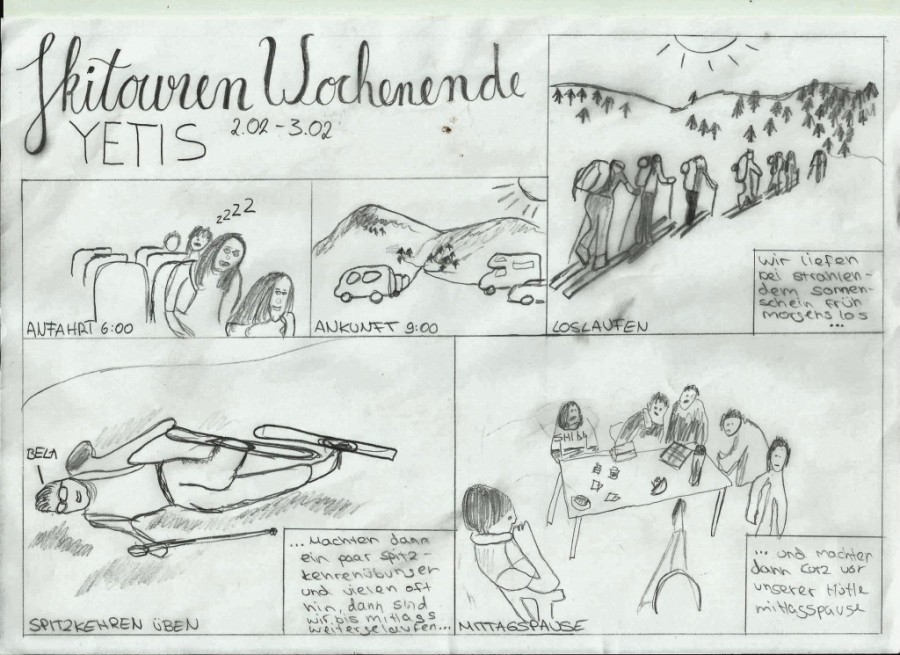 Skitouren Wochenende
YETIS 2.02 - 3.02
zzzz
ANFAHRT 6:00
ANKUNFT 9:00
LOSLAUFEN
wir liefen
bei strahlen-
dem sonnen-
schein früh
morgens los
...
BELA
SPITZKEHREN ÜBEN
... Machten dann
ein paar Spitz-
kehrenübungen
und vielen oft
hin, dann sind
wir bis mittags
weitergelaufen...
MITTAGSPAUSE
... und machten
dann kurz vor
unserer Hütte
mittagspause